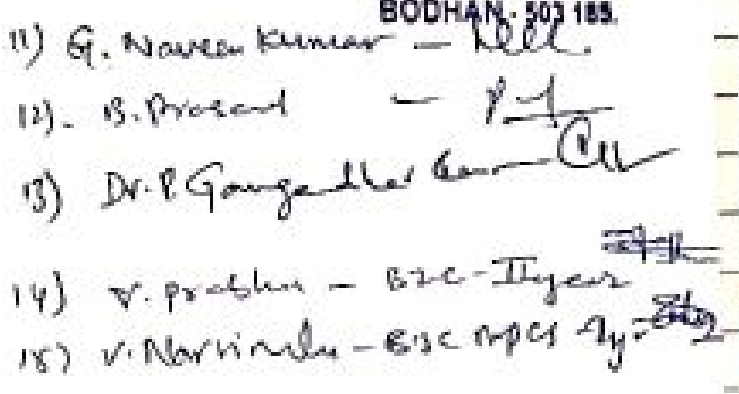 BODHAN - 503 185.
11) G. Naveen Kumar -
12). B. Prasad -
13) Dr. P. Gangadhar
14) V. Prabhu - BZC - II year
15) V. Narsimulu - BSC MPCs